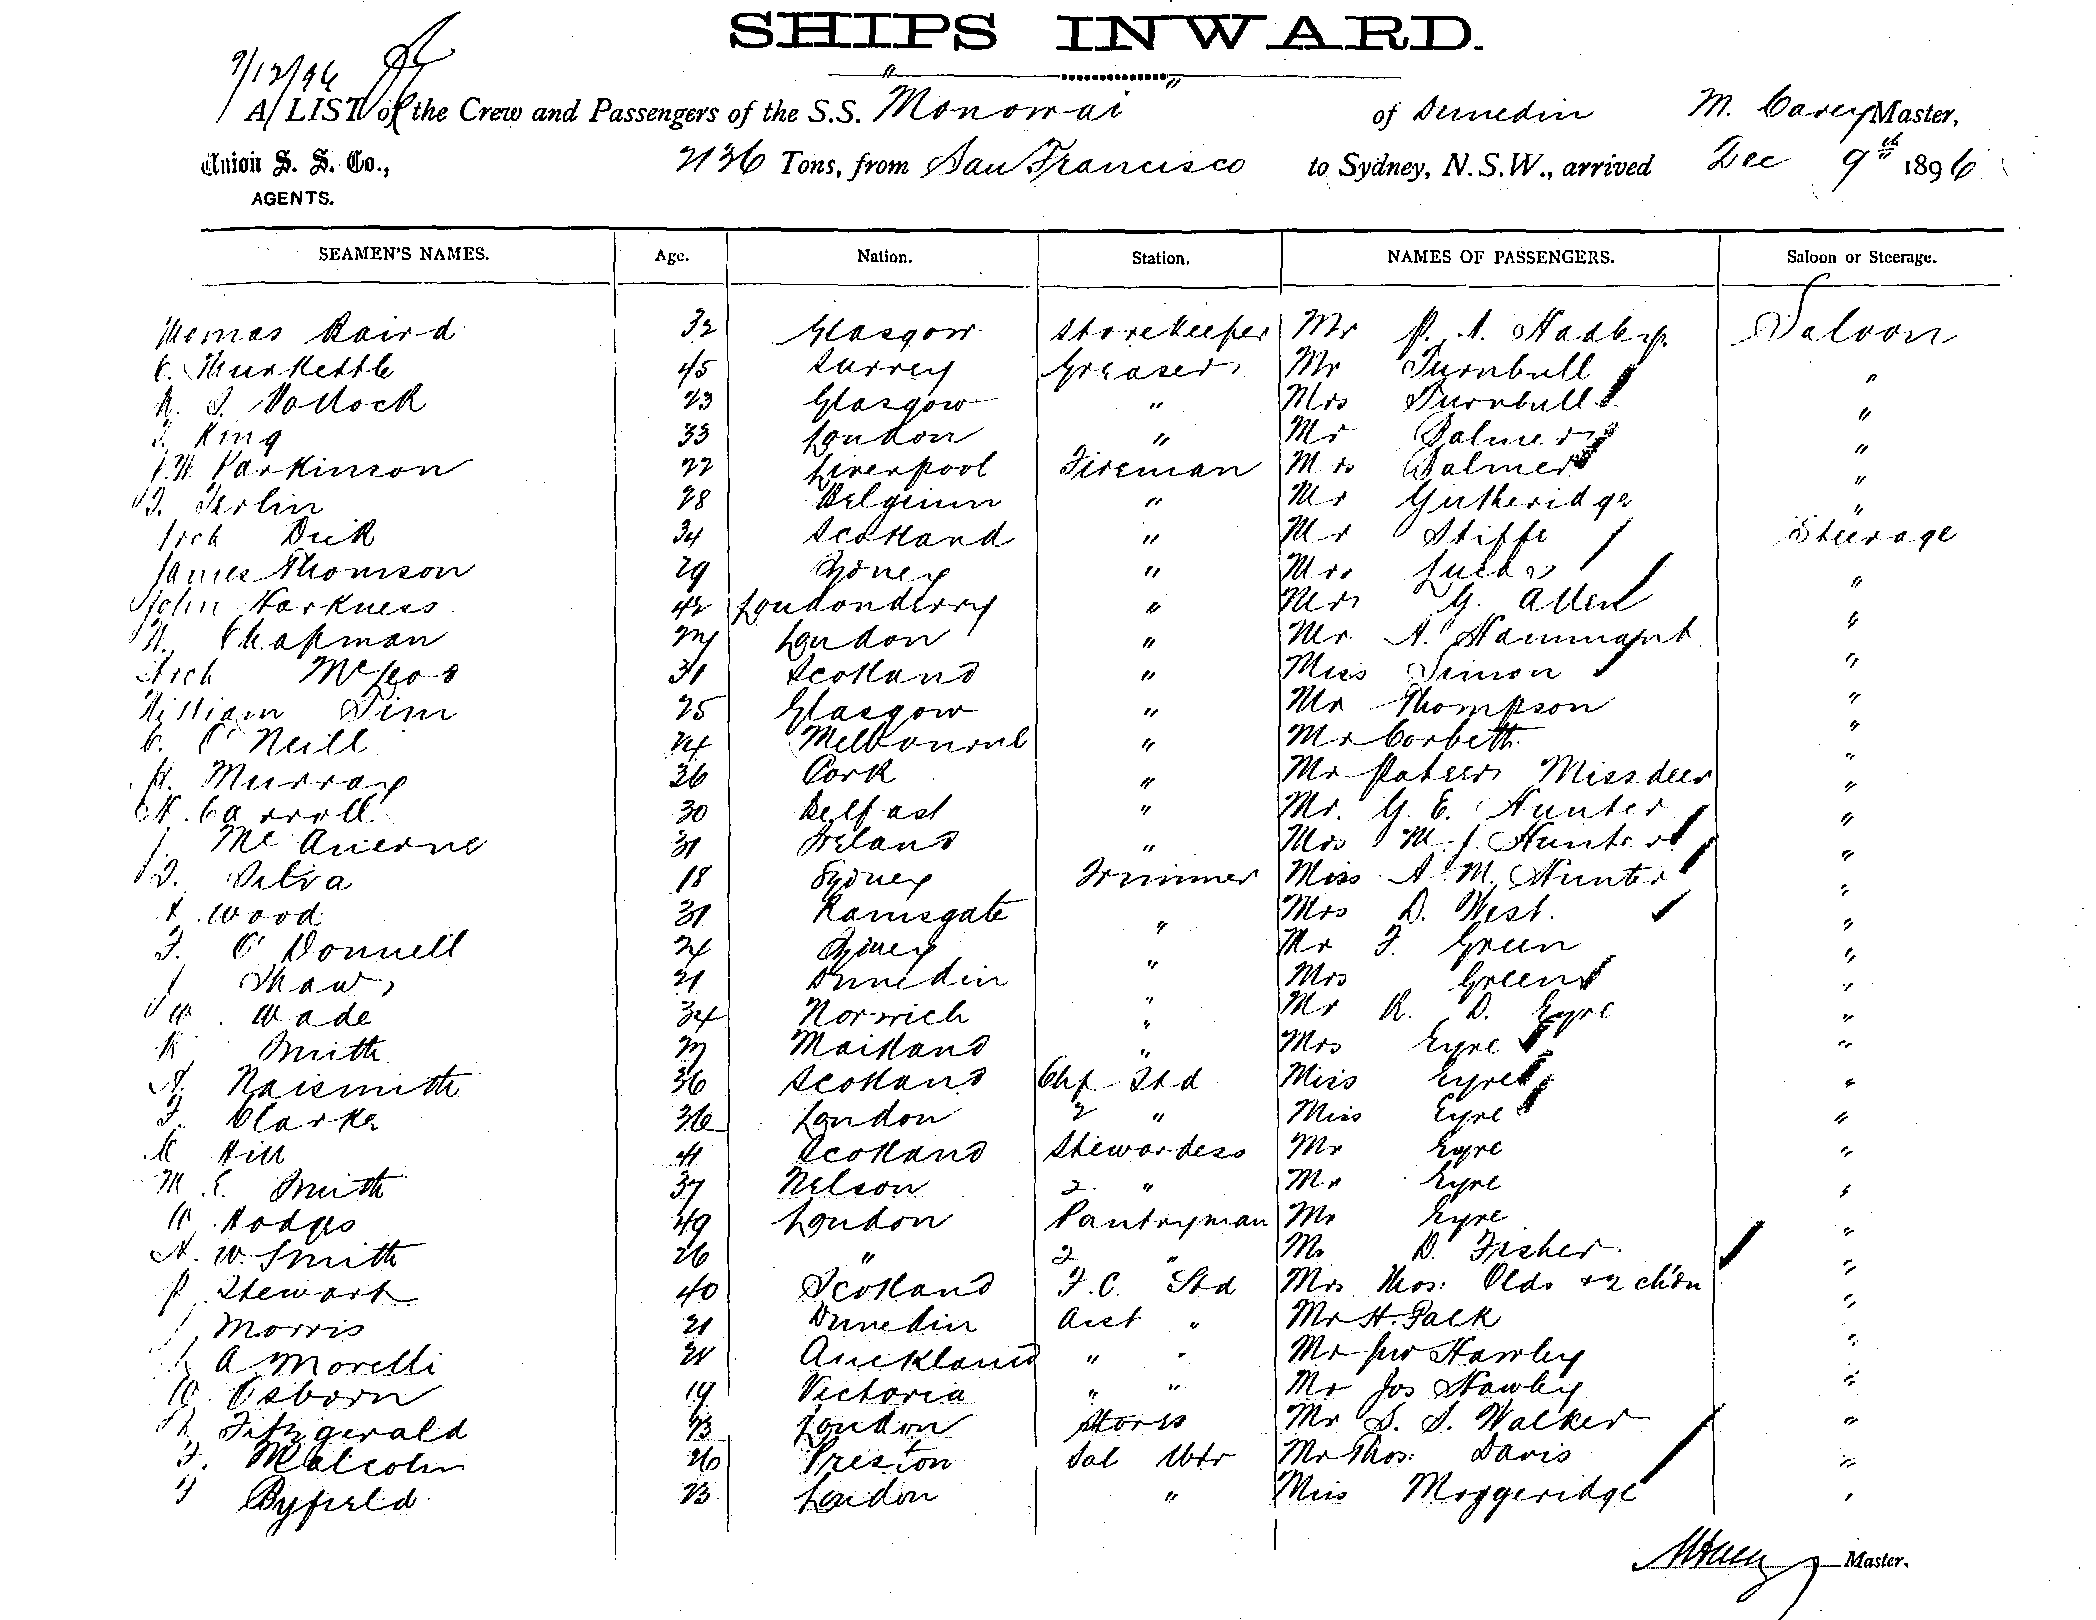 SHIPS INWARD.
9/12/96
A LIST of the Crew and Passengers of the S.S. Monowai of Dunedin M. Carey Master,
Union S. S. Co., 2136 Tons, from San Francisco to Sydney, N.S.W., arrived Dec 9th 1896
AGENTS.
SEAMEN'S NAMES. Age. Nation. Station. NAMES OF PASSENGERS. Saloon or Steerage.
Thomas Baird 32 Glasgow Storekeeper Mr P. A. Saloon
C. Thurkettle 45 Surrey Greaser Mr Turnbull "
R. J. Pollock 23 Glasgow " Mrs Turnbull "
King 33 London " Mr Palmer "
Parkinson 22 Liverpool Fireman Mrs Palmer "
28 Belgium " Mr Gutheridge "
Arch Dick 34 Scotland " Mr Stiffe Steerage
James Thomson 29 Sydney " Mrs Lucas "
John Harkness 42 Londonderry " Mrs G. Allen "
Chapman 27 London " Mr A. Hammant "
Arch McLeod 31 Scotland " Miss Simon "
William Sim 25 Glasgow " Mr Thompson "
C. O'Neill 24 Melbourne " Mr Corbett "
H. Murray 36 Cork " Mr "
H. Carroll 30 Belfast " Mr. G. E. Hunter "
J. 31 Ireland " Mrs M. J. Hunter "
D. Silva 18 Sydney Trimmer Miss A M. Hunter "
Wood 31 Ramsgate " Mrs D. West. "
F. O'Donnell 24 Sydney " Mr F. Green "
J Shaw 21 Dunedin " Mrs Green "
W. Wade 34 Norwich " Mr R. D. Eyre "
R Smith 27 Maitland " Mrs Eyre "
A. Naismith 36 Scotland Chf Std Miss Eyre "
F. Clarke 36 London 2 " Miss Eyre "
Hill 41 Scotland Stewardess Mr Eyre "
M. E. Smith 37 Nelson 2 " Mr Eyre "
Hodges 49 London Pantryman Mr Eyre "
A. W. Smith 26 " 2 " Mr D. Fisher "
P. Stewart 40 Scotland F.C. Std Mrs Thos: Olds + 2 ch'dn "
J. Morris 21 Dunedin Asst " Mr H. Pack "
A Morelli 21 Auckland " " Mr Jno Hawley "
Osborn 19 Victoria " " Mr Jos Hawley "
Fitzgerald 23 London Stores Mr S. S. Walker "
F. Malcolm 26 Preston Sal Wtr Mr Thos: Davis "
Byfield 23 London " Miss Moggeridge "
M Carey Master.